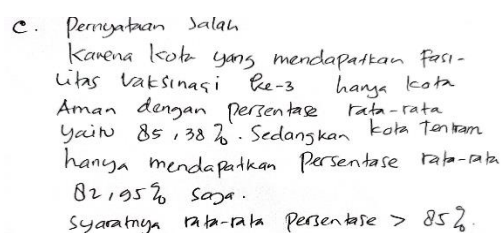 c. Pernyataan Salah
Karena kota yang mendapatkan fasi-
litas vaksinasi ke-3 hanya kota
Aman dengan persentase rata-rata
yaitu 85,38%. Sedangkan kota Tentram
hanya mendapatkan Persentase rata-rata
82,95% saja.
Syaratnya rata-rata Persentase > 85%.